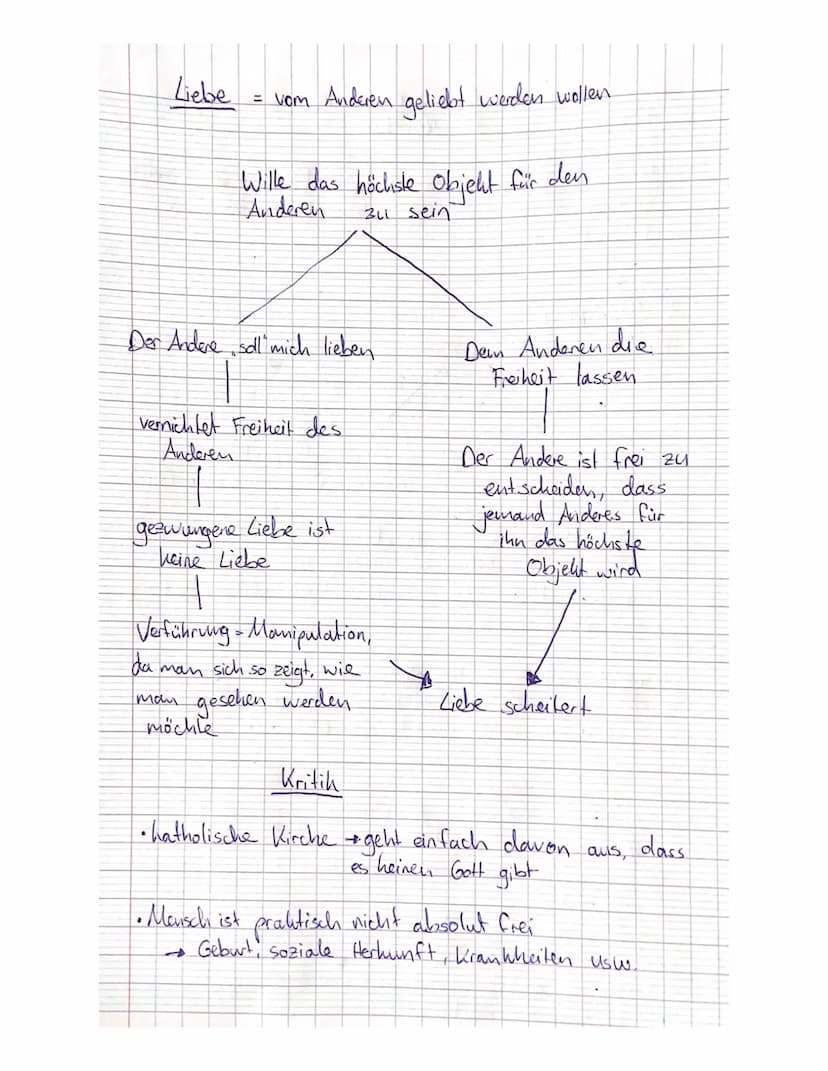 Liebe = vom Anderen geliebt werden wollen
Wille das höchste Objekt für den
Anderen zu sein
Der Andere „soll" mich lieben
vernichtet Freiheit des
Anderen
gezwungene Liebe ist
keine Liebe
Verführung = Manipulation,
da man sich so zeigt, wie
man gesehen werden
möchte
Dem Anderen die
Freiheit lassen
Der Andere ist frei zu
entscheiden, dass
jemand Anderes für
ihn das höchste
Objekt wird
Liebe scheitert
Kritik
• katholische Kirche → geht einfach davon aus, dass
es keinen Gott gibt
• Mensch ist praktisch nicht absolut frei
→ Geburt, soziale Herkunft, Krankheiten usw.